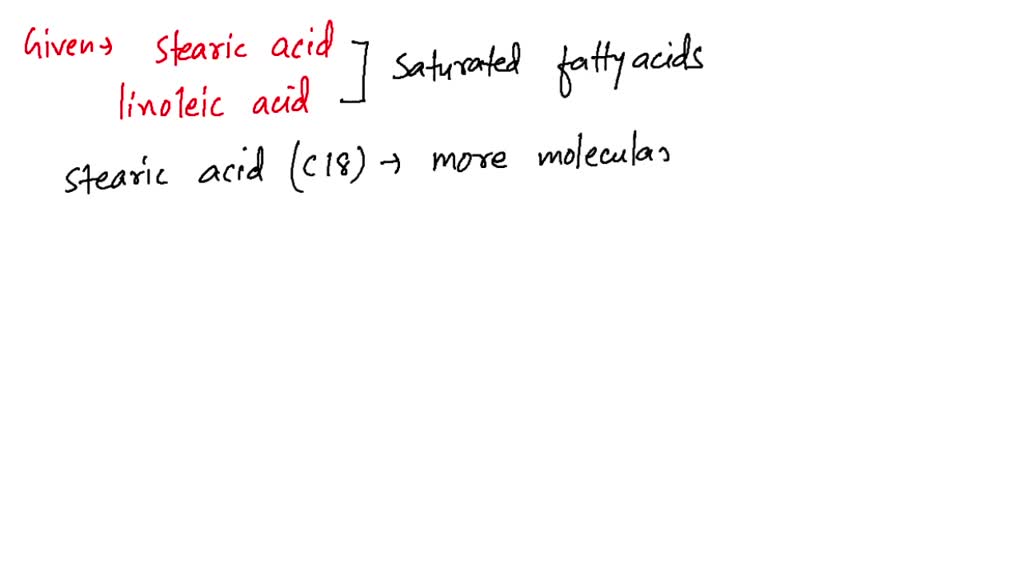 Given→ stearic acid
linoleic acid ] saturated fatty acids
stearic acid (C18) → more molecular